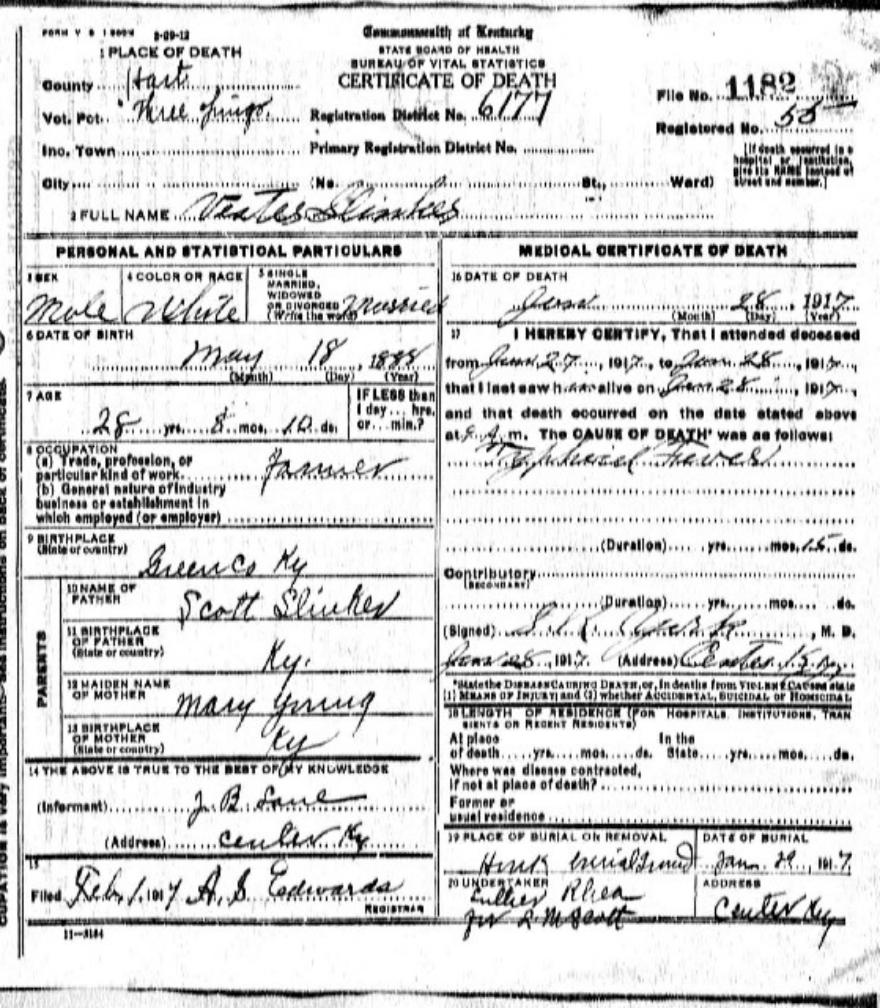 FORM V S 1 500M 8-29-12
Commonwealth of Kentucky
STATE BOARD OF HEALTH
BUREAU OF VITAL STATISTICS
CERTIFICATE OF DEATH
1 PLACE OF DEATH
County Hart
Vot. Pct. Three Springs
Inc. Town
City (No. St., Ward)
Registration District No. 6177
Primary Registration District No.
File No. 1182
Registered No. 55
[If death occurred in a hospital or institution, give its NAME instead of street and number.]
2 FULL NAME Vester Slinker
PERSONAL AND STATISTICAL PARTICULARS
3 SEX Male
4 COLOR OR RACE White
5 SINGLE MARRIED, WIDOWED OR DIVORCED (Write the word) Married
6 DATE OF BIRTH
May 18, 1888
(Month) (Day) (Year)
7 AGE
28 yrs. 8 mos. 10 ds.
IF LESS than 1 day... hrs. or... min.?
8 OCCUPATION
(a) Trade, profession, or particular kind of work. Farmer
(b) General nature of industry business or establishment in which employed (or employer)
9 BIRTHPLACE (State or country)
Green Co Ky
PARENTS
10 NAME OF FATHER Scott Slinker
11 BIRTHPLACE OF FATHER (State or country) Ky.
12 MAIDEN NAME OF MOTHER Mary Young
13 BIRTHPLACE OF MOTHER (State or country) Ky
14 THE ABOVE IS TRUE TO THE BEST OF MY KNOWLEDGE
(Informant) J. B. Lane
(Address) Center Ky
15
Filed Feb. 1, 1917 A. S. Edwards
REGISTRAR
11-3184
MEDICAL CERTIFICATE OF DEATH
16 DATE OF DEATH
Jan 28, 1917
(Month) (Day) (Year)
17 I HEREBY CERTIFY, That I attended deceased
from Jan 27, 1917, to Jan 28, 1917,
that I last saw h alive on Jan 28, 1917,
and that death occurred on the date stated above
at A. m. The CAUSE OF DEATH* was as follows:
Typhoid Fever
(Duration) yrs. mos. 15 ds.
Contributory (SECONDARY)
(Duration) yrs. mos. ds.
(Signed) M. D.
Jan 28, 1917 (Address) Center Ky.
*State the DISEASE CAUSING DEATH, or, in deaths from VIOLENT CAUSES state
(1) MEANS OF INJURY; and (2) whether ACCIDENTAL, SUICIDAL or HOMICIDAL.
18 LENGTH OF RESIDENCE (FOR HOSPITALS, INSTITUTIONS, TRANSIENTS OR RECENT RESIDENTS)
At place of death yrs. mos. ds. In the State yrs. mos. ds.
Where was disease contracted, if not at place of death?
Former or usual residence
19 PLACE OF BURIAL OR REMOVAL
burial Ground
DATE OF BURIAL
Jan. 29, 1917
20 UNDERTAKER
Luther Rhea
for R M Scott
ADDRESS
Center Ky